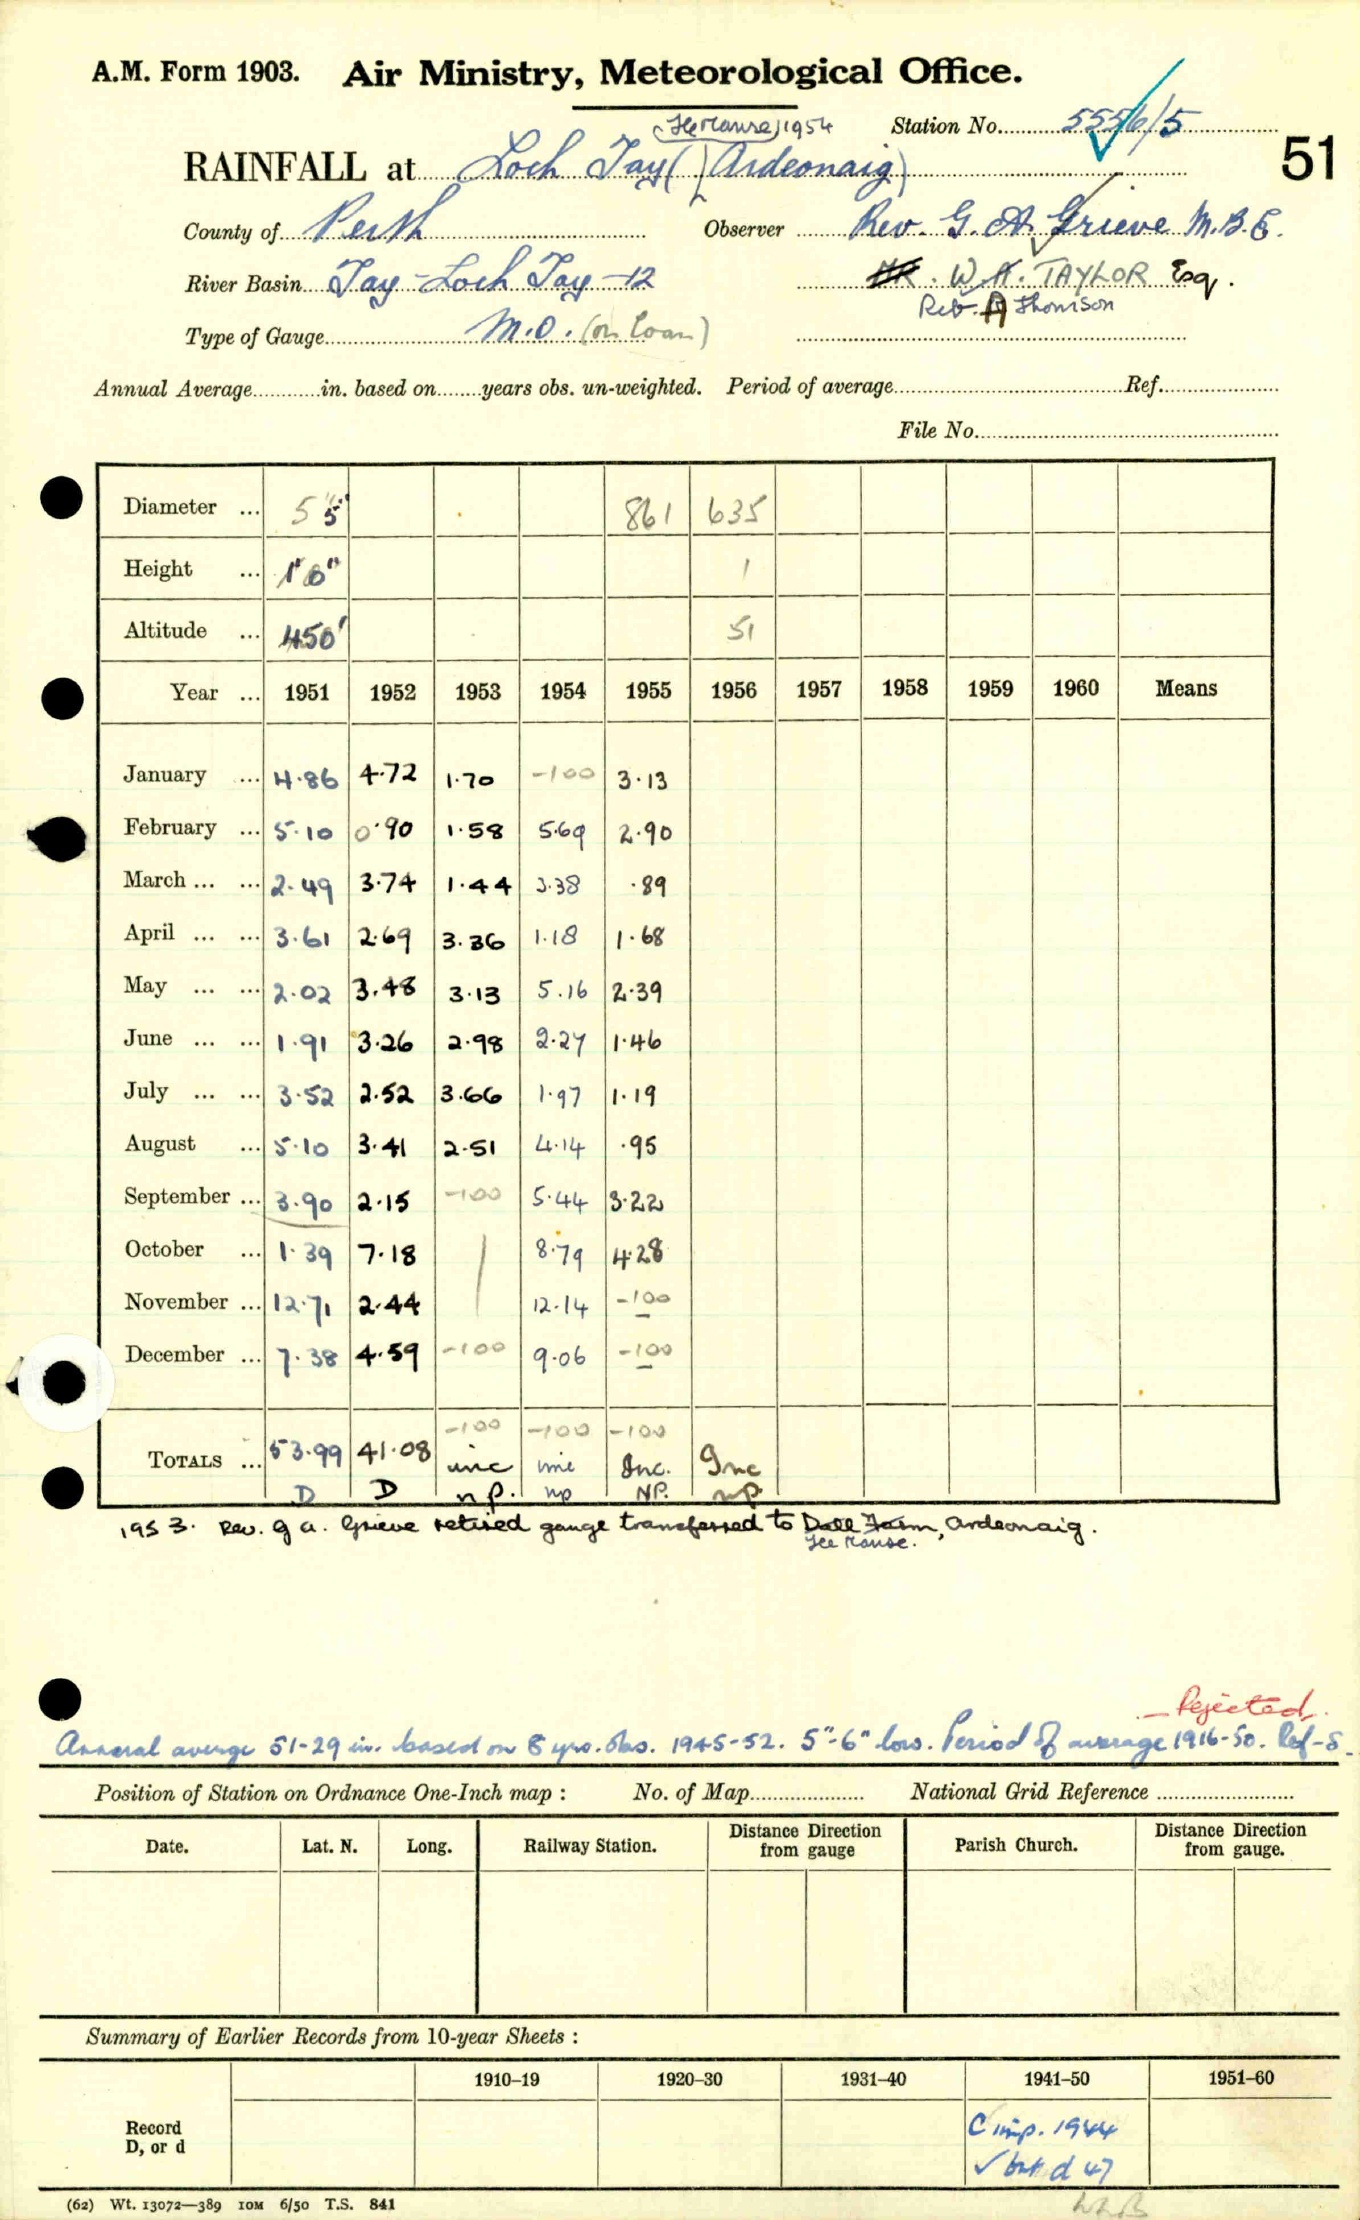 A.M. Form 1903. Air Ministry, Meteorological Office.
(The Manse) 1954
Station No. 5556/5
51
RAINFALL at Loch Tay ( ) (Ardeonaig)
County of Perth Observer Rev. G. A. Grieve M.B.E.
River Basin Tay - Loch Tay - 12 W. A. TAYLOR Esq.
Rev. A Thomson
Type of Gauge M.O. (on loan)
Annual Average in. based on years obs. un-weighted. Period of average Ref.
File No.
Diameter ... 5" 5" 861 635
Height ... 1' 0" 1
Altitude ... 450' 51
Year ... 1951 1952 1953 1954 1955 1956 1957 1958 1959 1960 Means
January ... 4.86 4.72 1.70 -100 3.13
February ... 5.10 0.90 1.58 5.69 2.90
March ... ... 2.49 3.74 1.44 3.38 .89
April ... ... 3.61 2.69 3.36 1.18 1.68
May ... ... 2.02 3.48 3.13 5.16 2.39
June ... ... 1.91 3.26 2.98 2.27 1.46
July ... ... 3.52 2.52 3.66 1.97 1.19
August ... 5.10 3.41 2.51 4.14 .95
September ... 3.90 2.15 -100 5.44 3.22
October ... 1.39 7.18 8.79 4.28
November ... 12.71 2.44 12.14 -100
December ... 7.38 4.59 -100 9.06 -100
-100 -100 -100
TOTALS ... 53.99 41.08 inc inc Inc. Inc
D D n.p. np NP. n.p.
1953. Rev. G A. Grieve retired gauge transferred to Dall Farm, Ardeonaig.
The Manse.
- Rejected.
Annual average 51.29 in. based on 8 yrs. obs. 1945-52. 5"-6" low. Period of average 1916-50. Ref-S.
Position of Station on Ordnance One-Inch map : No. of Map National Grid Reference
Date. Lat. N. Long. Railway Station. Distance from gauge Direction Parish Church. Distance from gauge. Direction
Summary of Earlier Records from 10-year Sheets :
1910–19 1920–30 1931–40 1941–50 1951–60
Record
D, or d
C inp. 1944
✓ but d 47
(62) Wt. 13072—389 IOM 6/50 T.S. 841